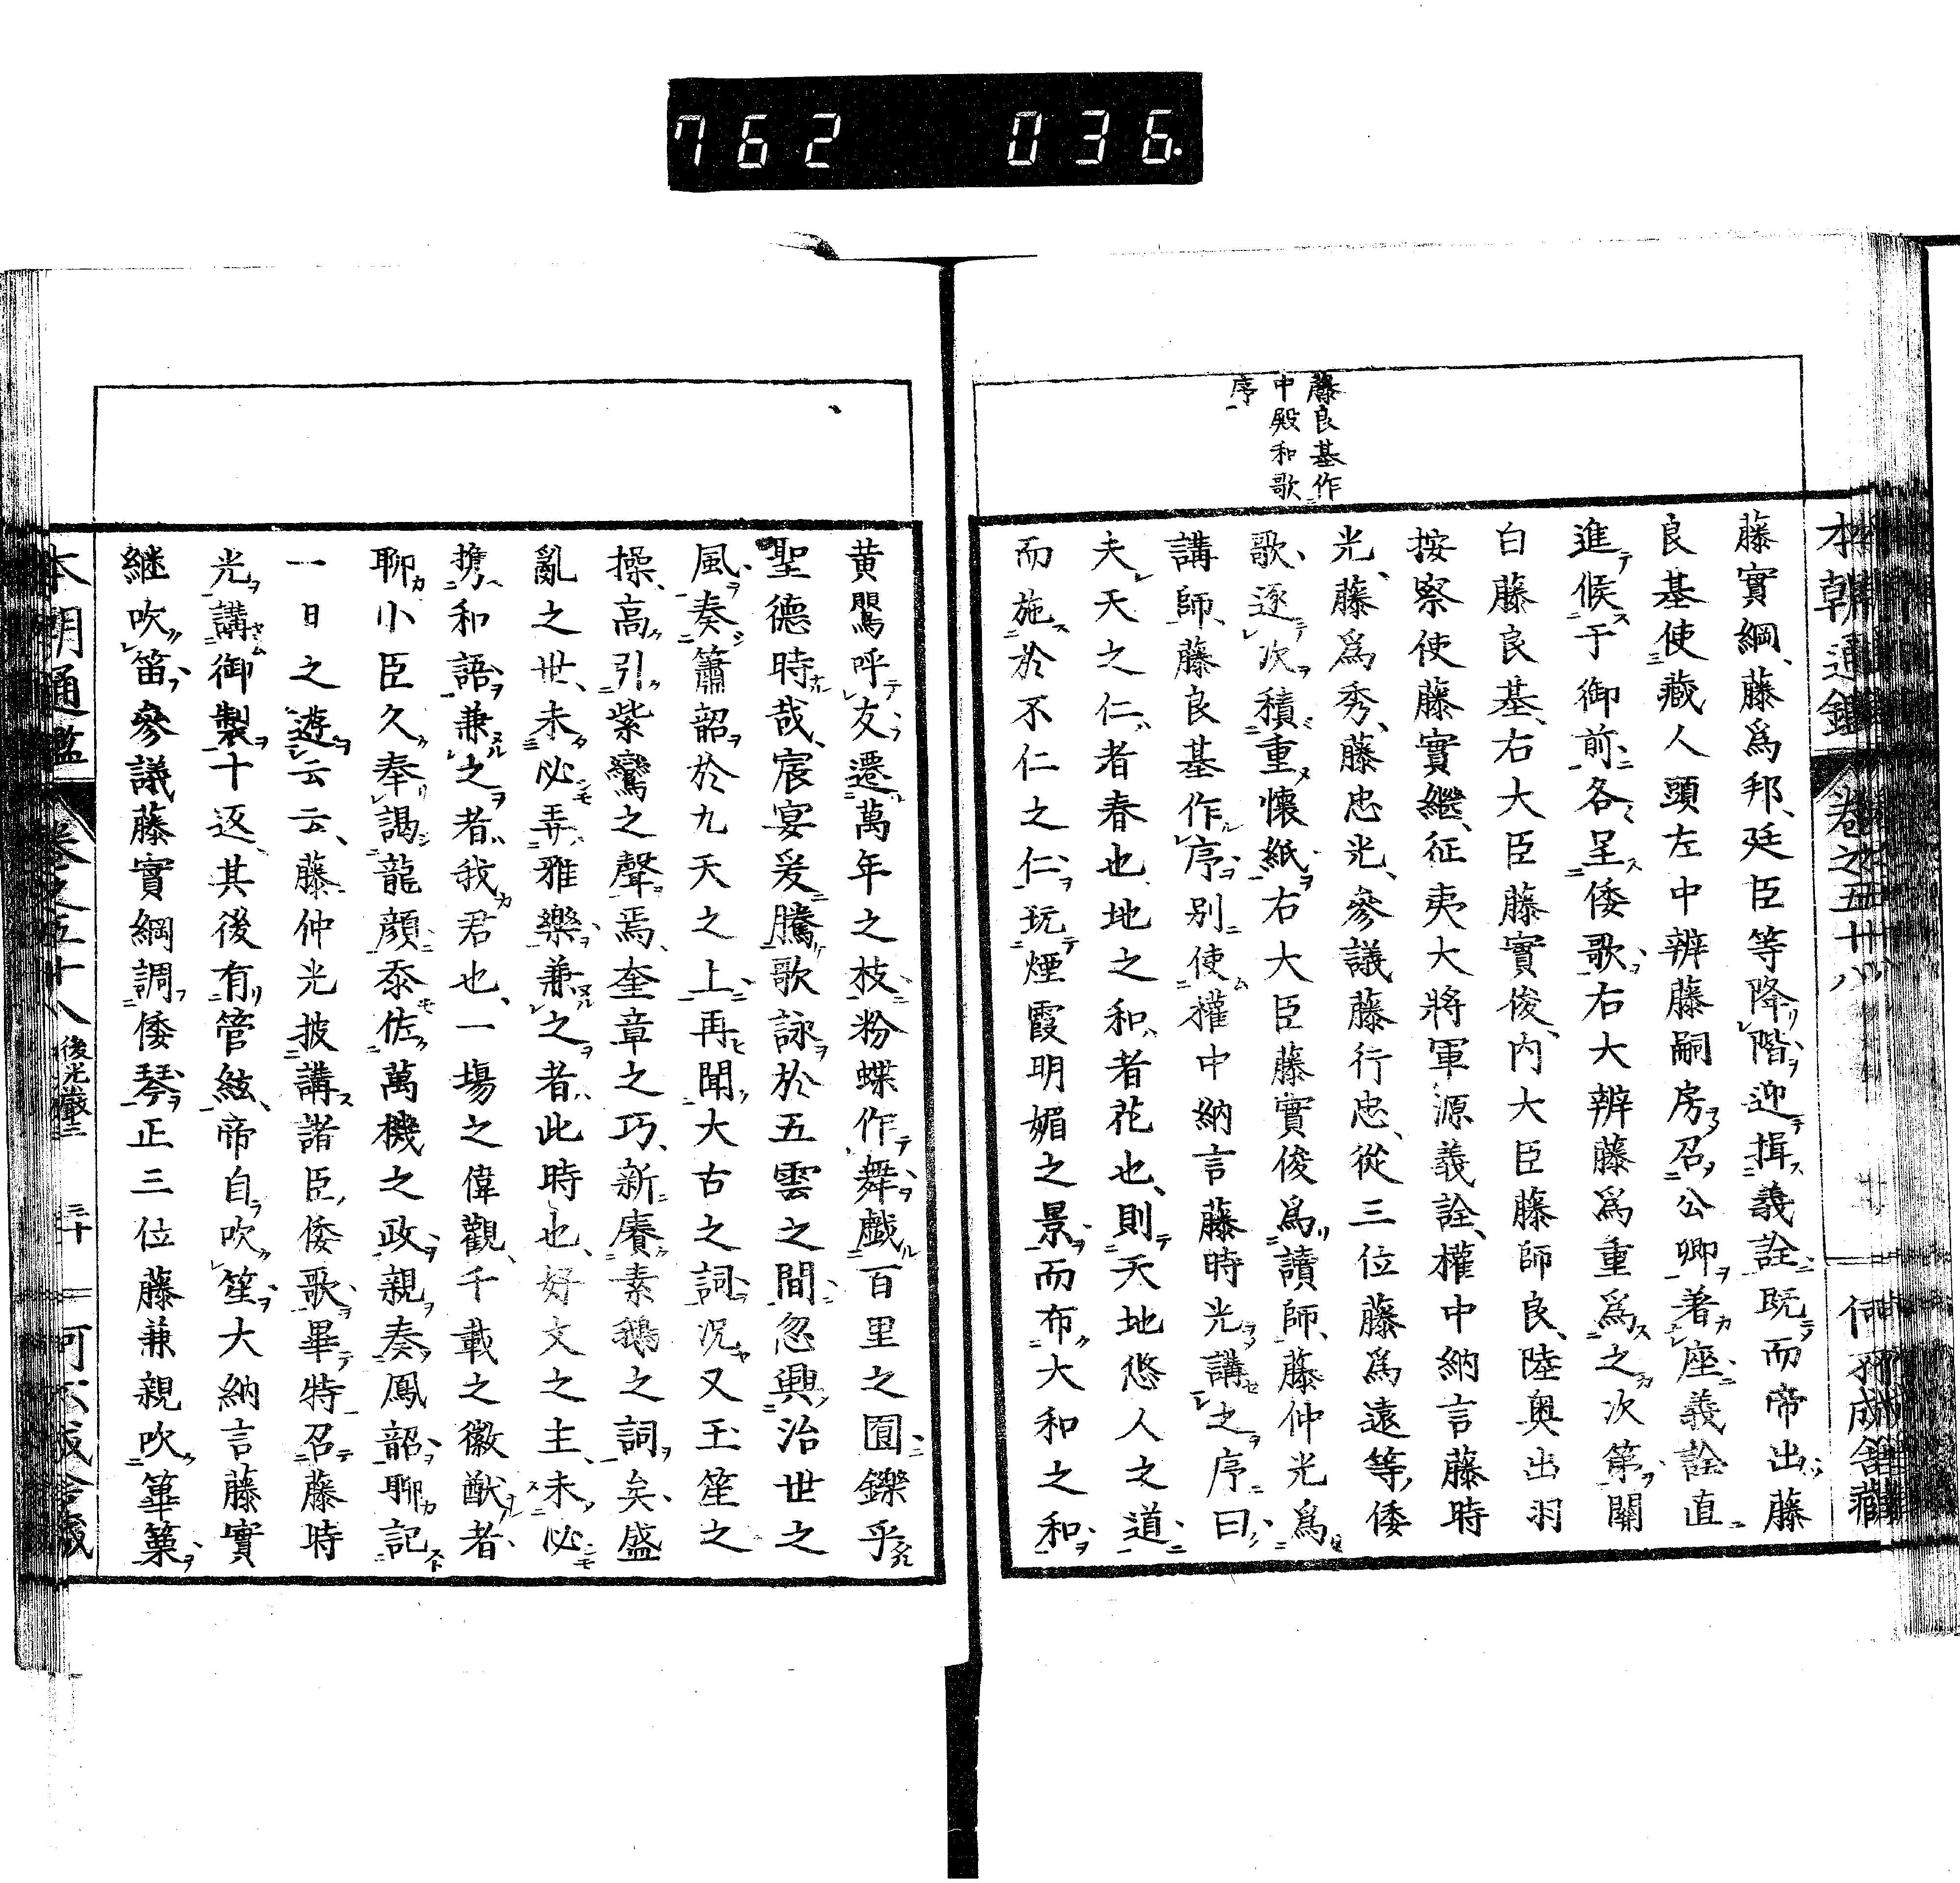 762 036.
本朝通鑑 卷之五十八 何不成舍藏
藤良基作
中殿和歌
序
藤實綱、藤爲邦、廷臣等降階迎揖義詮既而帝出藤
良基使藏人頭左中辨藤嗣房召公卿着座義詮直
進候于御前各呈倭歌右大辨藤爲重爲之次第關
白藤良基、右大臣藤實俊、内大臣藤師良、陸奥出羽
按察使藤實繼、征夷大將軍源義詮、權中納言藤時
光、藤爲秀、藤忠光、參議藤行忠、從三位藤爲遠等、倭
歌、逐次積重懷紙右大臣藤實俊爲讀師、藤仲光爲
講師、藤良基作序、別使權中納言藤時光講之序曰、
夫天之仁者春也、地之和者花也、則天地悠人之道、
而施於不仁之仁、玩煙霞明媚之景、而布大和之和、
黄鸎呼友、遷萬年之枝、粉蝶作舞、戲百里之園、鑠乎
聖德時哉、宸宴爰騰歌詠於五雲之間、忽興治世之
風、奏簫韶於九天之上、再聞大古之詞、况又玉笙之
操、高引紫鸞之聲焉、奎章之巧、新賡素鵝之詞矣、盛
亂之世、未必弄雅樂、兼之者此時也、好文之主、未必
携和語、兼之者我君也、一場之偉觀、千載之徽猷者、
聊小臣久奉謁龍顔、忝佐萬機之政、親奏鳳韶、聊記
一日之遊云云、藤仲光披講諸臣倭歌、畢特召藤時
光講御製十返、其後有管絃、帝自吹笙、大納言藤實
継吹笛、參議藤實綱調倭琴、正三位藤兼親吹篳篥、
本朝通鑑 卷之五十八 後光嚴三 三十 何不成舍藏